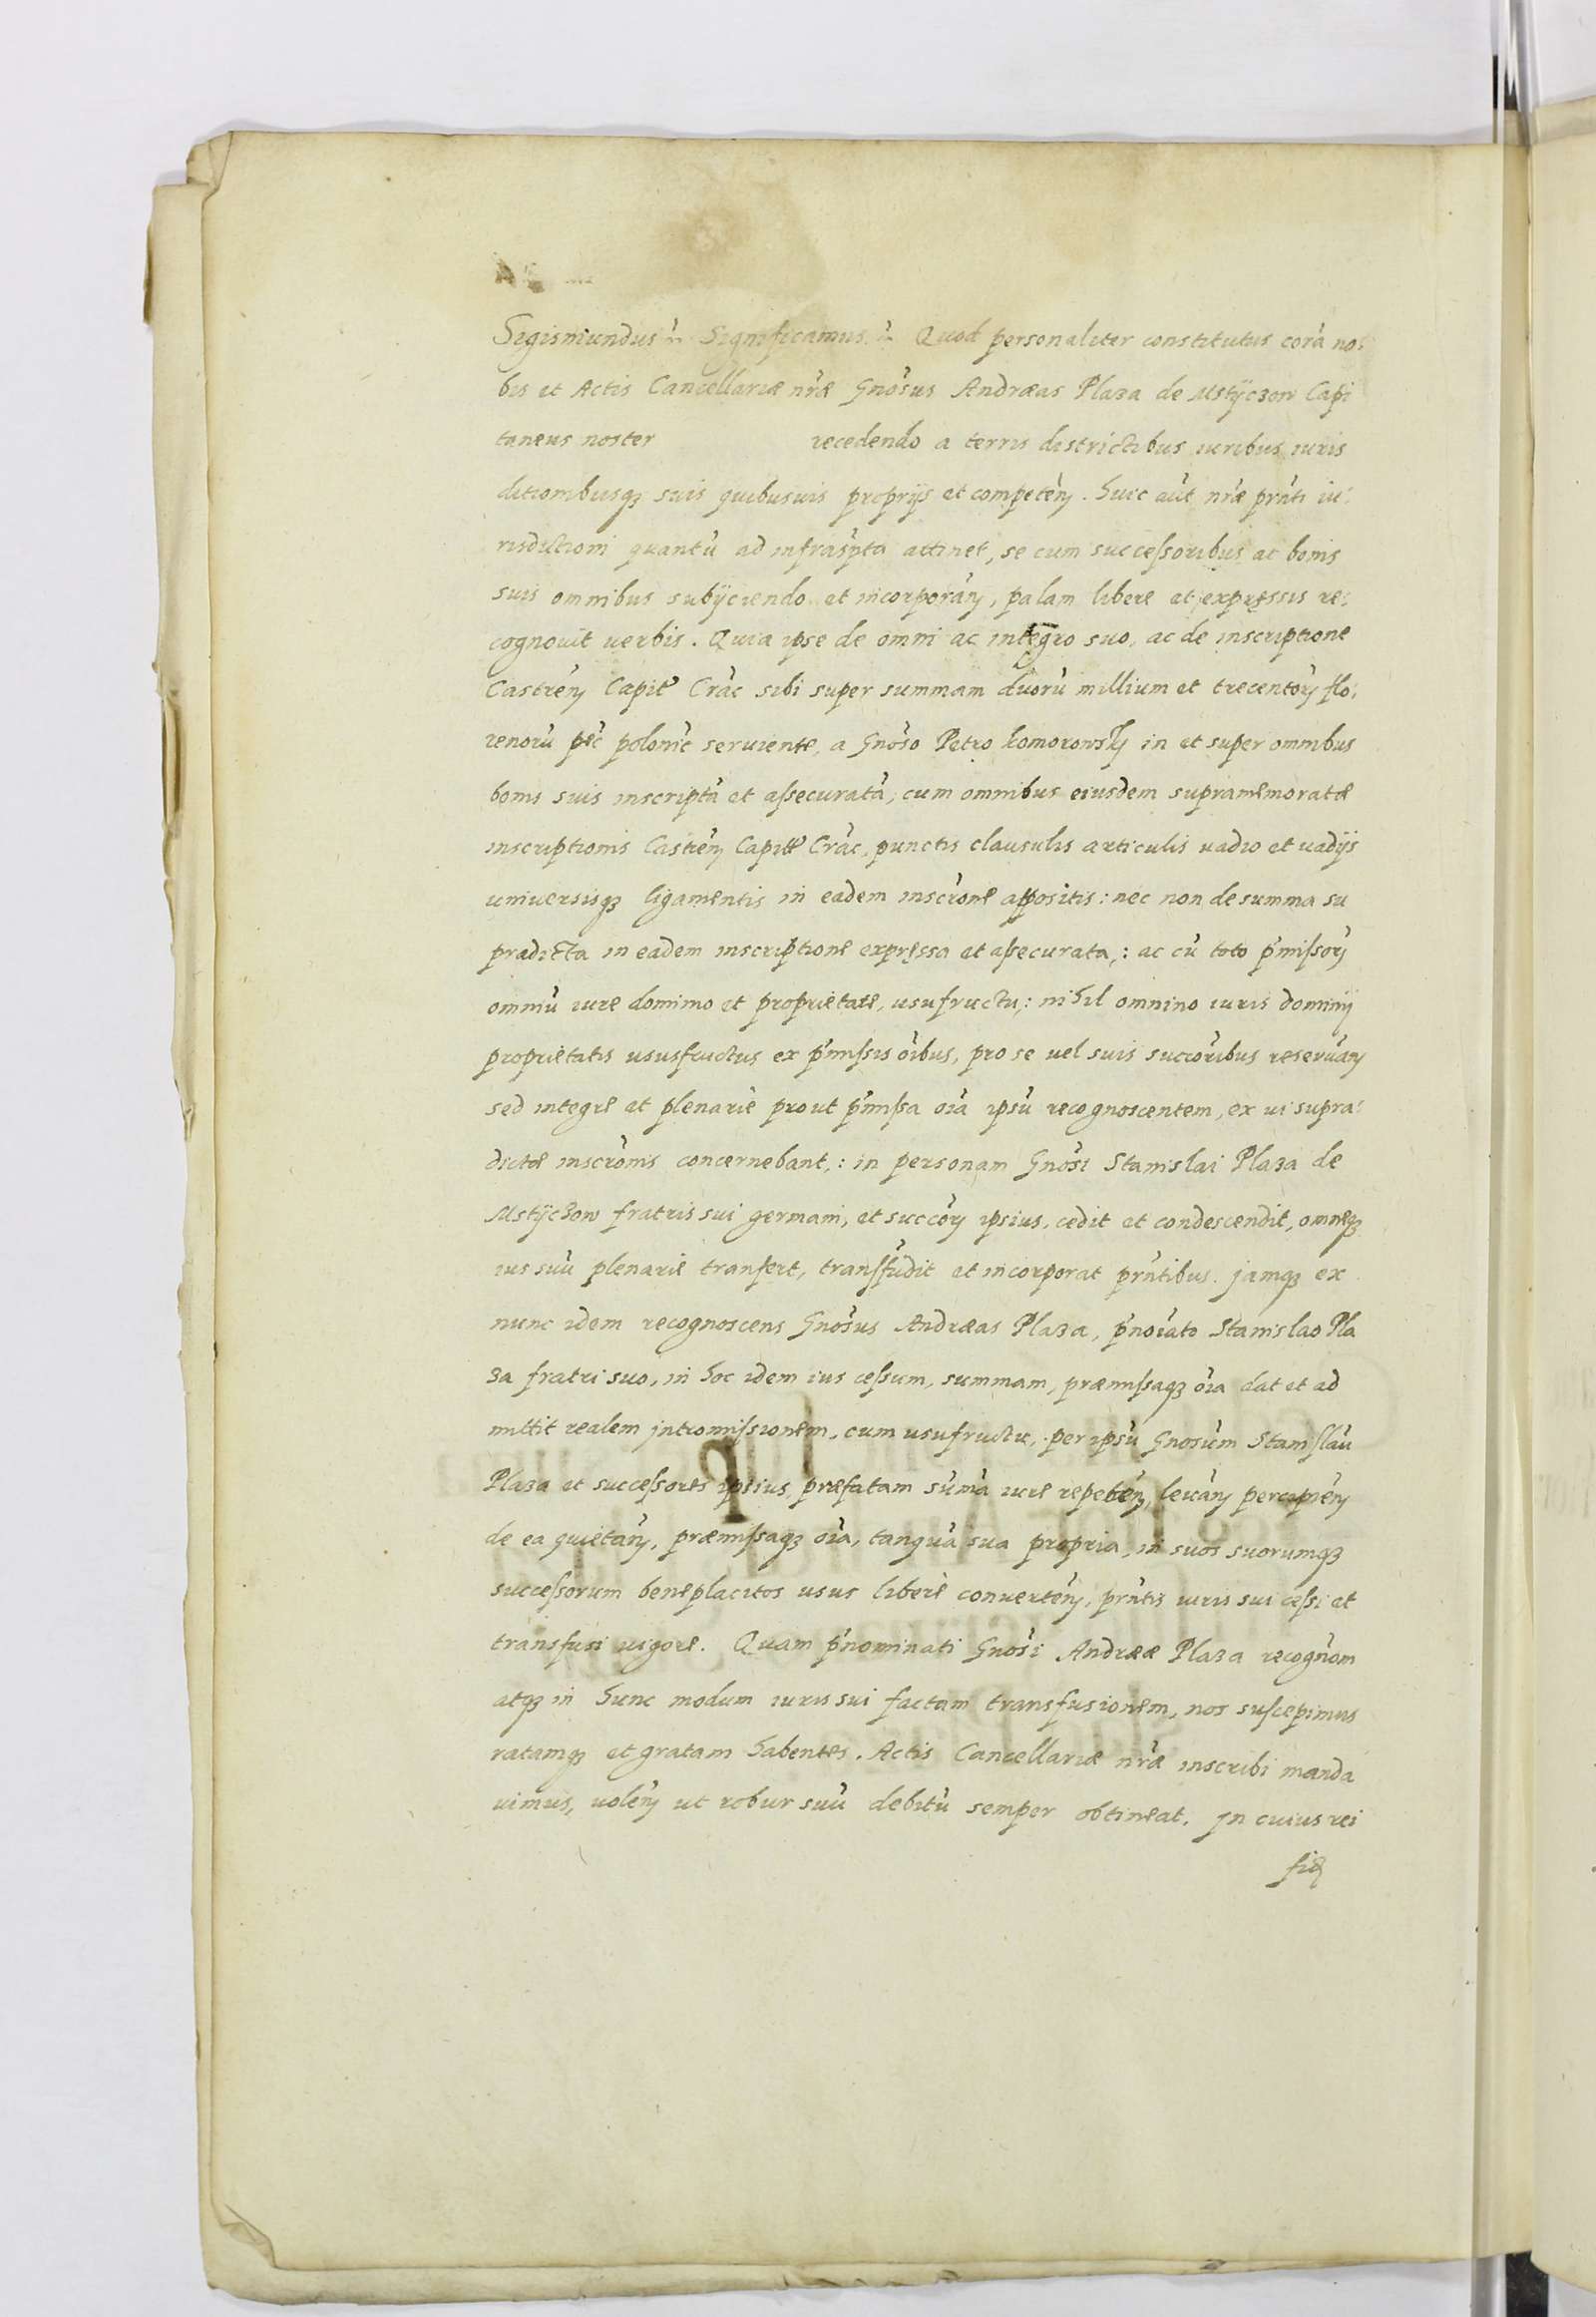 Sigismundus etc. Significamus etc. Quod personaliter constitutus corā no⸗
bis et Actis Cancellariæ nr̃æ Gnõsus Andræas Plaza de Mstÿczow Capi
taneus noster recedendo a terris districtibus iuribus iuris
ditionibusqʒ suis quibusuis proprijs et competeñ. Huic aũt nr̃æ prñti iu⸗
risdictioni quantũ ad infrasp̃ta attinet, se cum successoribus ac bonis
suis omnibus subÿciendo et incorporañ, palam libere et expressis re⸗
cognouit verbis. Quia ipse de omni ac integro suo, ac de inscriptione
Castreñ Capitĩ Crac̃ sibi super summam duorũ millium et trecentorũ flo⸗
renorũ pec̃ polonic̃ seruiente, a Gnõso Petro Komorowskj in et super omnibus
bonis suis inscriptã et assecuratã, cum omnibus eiusdem supramemoratæ
inscriptionis Castreñ Capitĩ Crac̃, punctis clausulis articulis uadio et uadijs
uniuersisqʒ ligamentis in eadem inscrõne appositis: nec non de summa su
pradicta in eadem inscriptione expressa et assecurata,: ac cũ toto p̃missorũ
omniũ iure dominio et proprietate, usufructu,: nihil omnino iuris dominij
proprietatis ususfructus ex p̃missis õibus, pro se uel suis succõribus reseruañ
sed integre et plenariè prout p̃missa õia ipsũ recognoscentem, ex ui supra⸗
dictæ inscrõnis concernebant,: in personam Gnõsi Stanislai Plaza de
Mstÿczow fratris sui germani, et succorũ ipsius, cedit et condescendit, omneqʒ
ius suũ plenariè transfert, transfudit et incorporat prñtibus. Jamqʒ ex
nunc idem recognoscens Gnõsus Andræas Plaza, p̃noĩato Stanislao Pla
za fratri suo, in hoc idem ius cessum, summam, præmissaqʒ õia dat et ad
mittit realem jntromissionem, cum usufructu, per ipsũ Gnosũm Stanislaũ
Plaza et successores ipsius, præfatam sum̃ã iure repeteñ, leuañ percipieñ
de ea quietañ, præmissaqʒ õia, tanquã sua propria, in suos suorumqʒ
successorum beneplacitos usus liberè conuerteñ, prñtis iuris sui cessi et
transfusi uigore. Quam p̃nominati Gnõsi Andreæ Plaza recogñom
atqʒ in hunc modum iuris sui factam transfusionem, nos suscepimus
ratamqʒ et gratam habentes. Actis Cancellariæ nr̃æ inscribi manda
uimus, uoleñ ut robur suũ debitũ semper obtineat. Jn cuius rei
fid